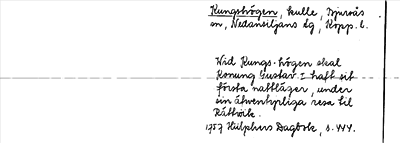 Kungshögen, kulle, Bjursås
sn, Nedansiljans dg, Kopp. l.
Wid Kungs-högen skal
Konung Gustav I haft sit
första nattläger, under
sin äfwentyrliga resa til
Rättwik.
1757 Hülphers Dagbok, s. 444.